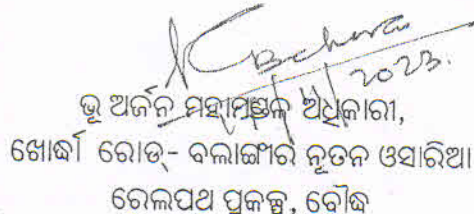 ଭୂ ଅର୍ଜନ ମହାମଣ୍ଡଳ ଅଧିକାରୀ,
ଖୋର୍ଦ୍ଧା ରୋଡ୍- ବଲାଙ୍ଗୀର ନୂତନ ଓସାରିଆ
ରେଳପଥ ପ୍ରକଳ୍ପ, ବୌଦ୍ଧ